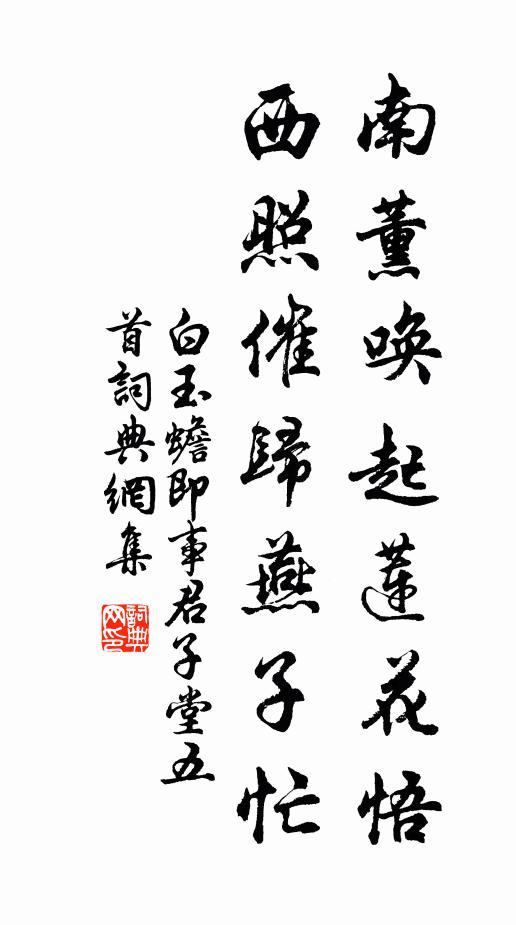 南薰唤起莲花悟
西照催歸燕子忙
白玉蟾即事君子堂五
首詞典網集
詞典網印